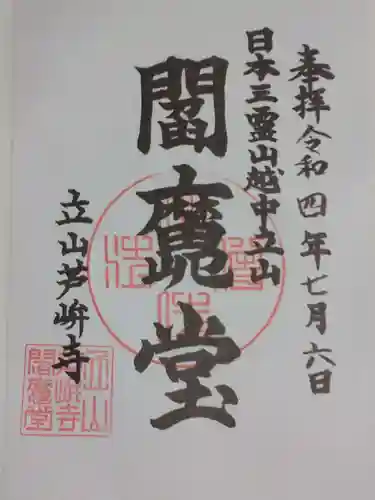 奉拝令和四年七月六日
日本三霊山越中立山
閻魔堂
立山芦峅寺
立山
芦峅寺
閻魔堂